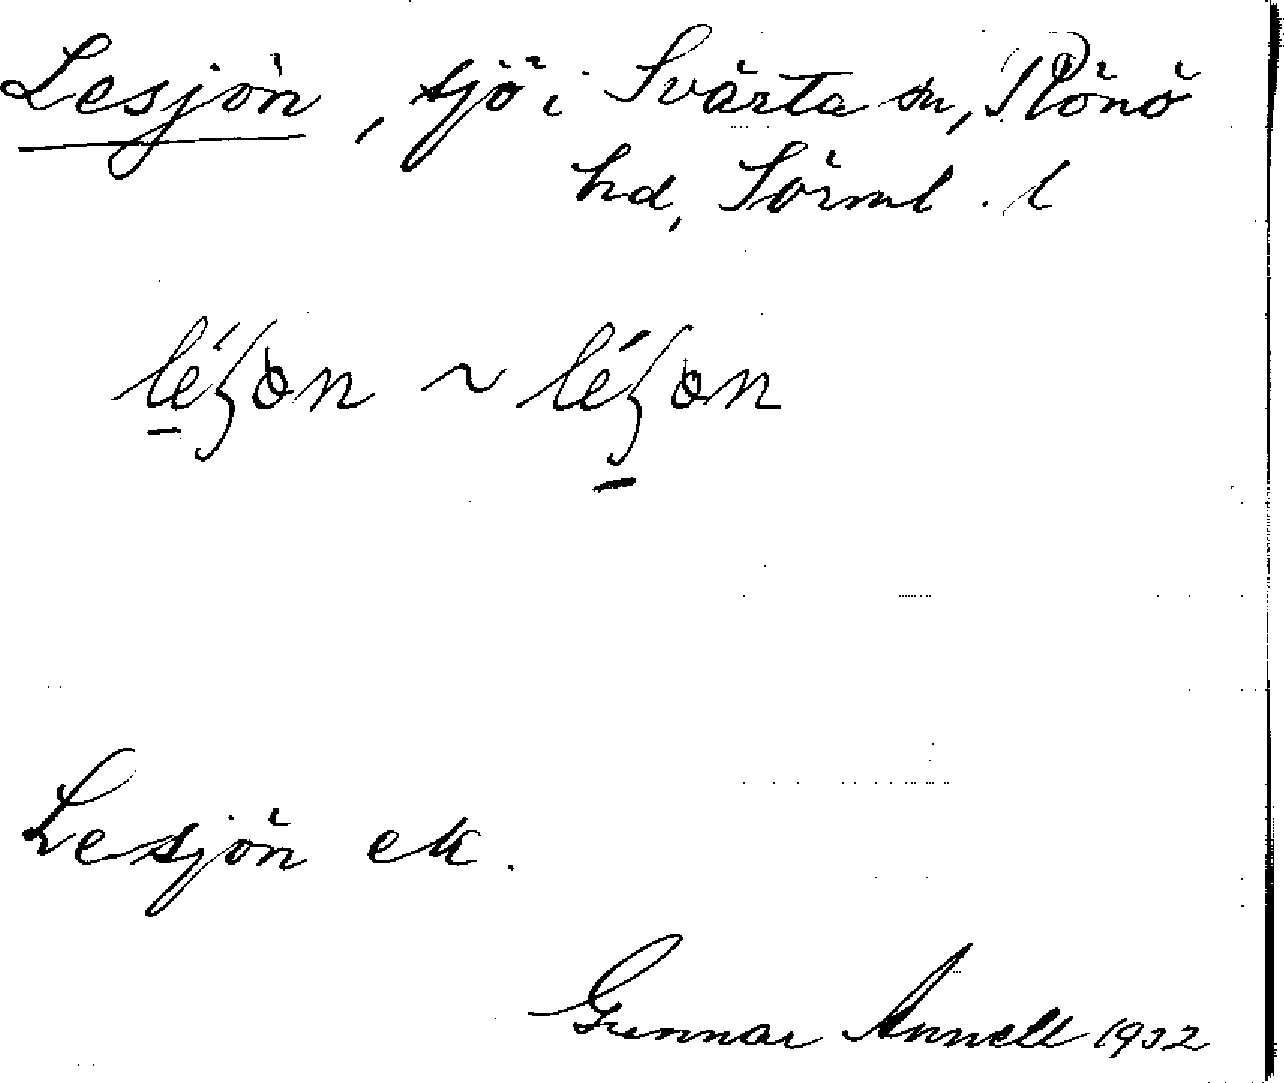 Lesjön, sjö i Svärta sn, Rönö
hd, Sörml. l
léʃɵn ~ léʃɵn
Lesjön ek.
Gunnar Annell 1932